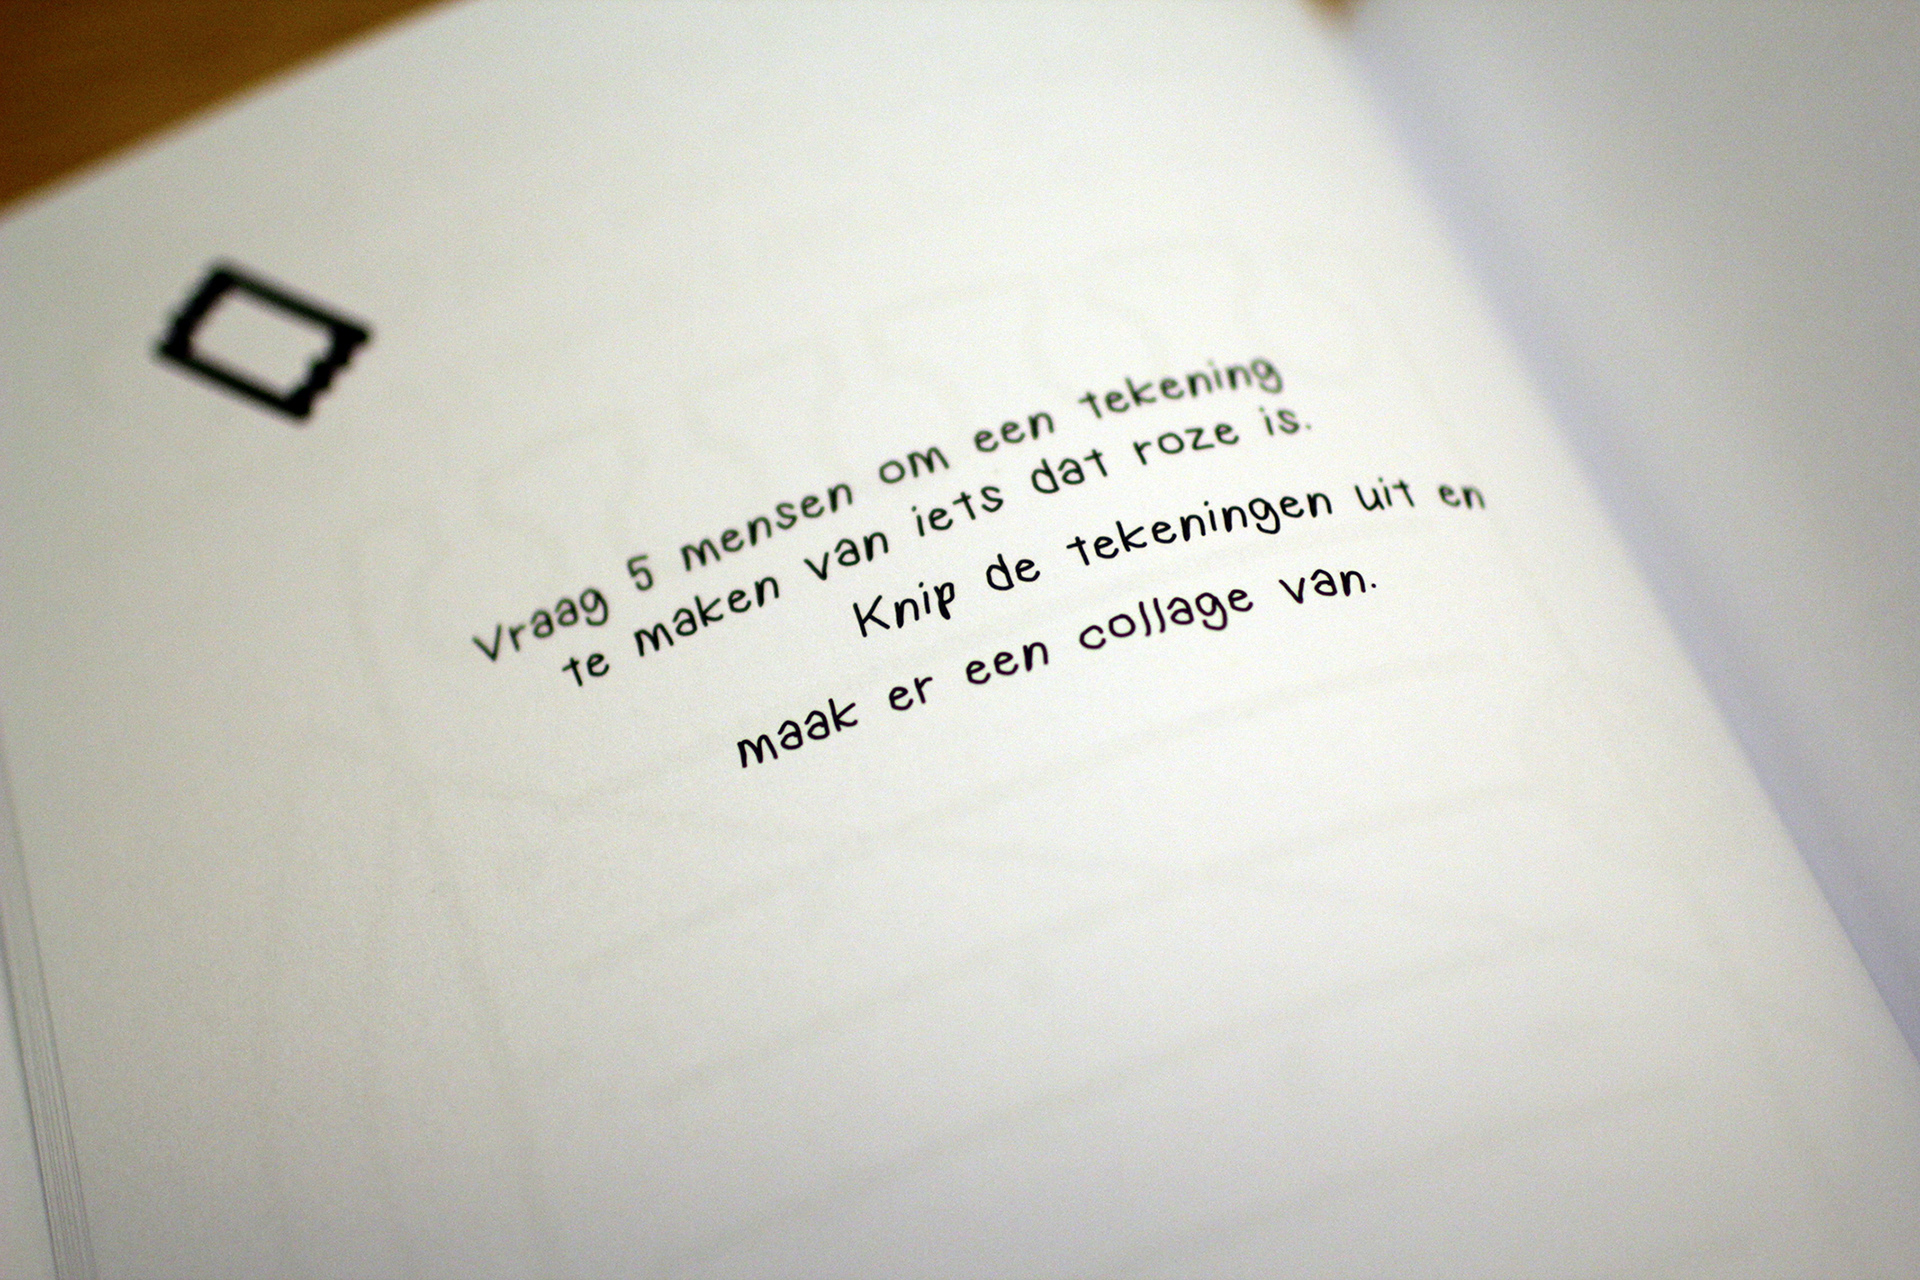 Vraag 5 mensen om een tekening
te maken van iets dat roze is.
Knip de tekeningen uit en
maak er een collage van.